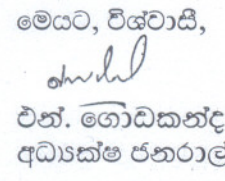 මෙයට, විශ්වාසී,
එන්. ගොඩකන්ද
අධ්‍යක්ෂ ජනරාල්